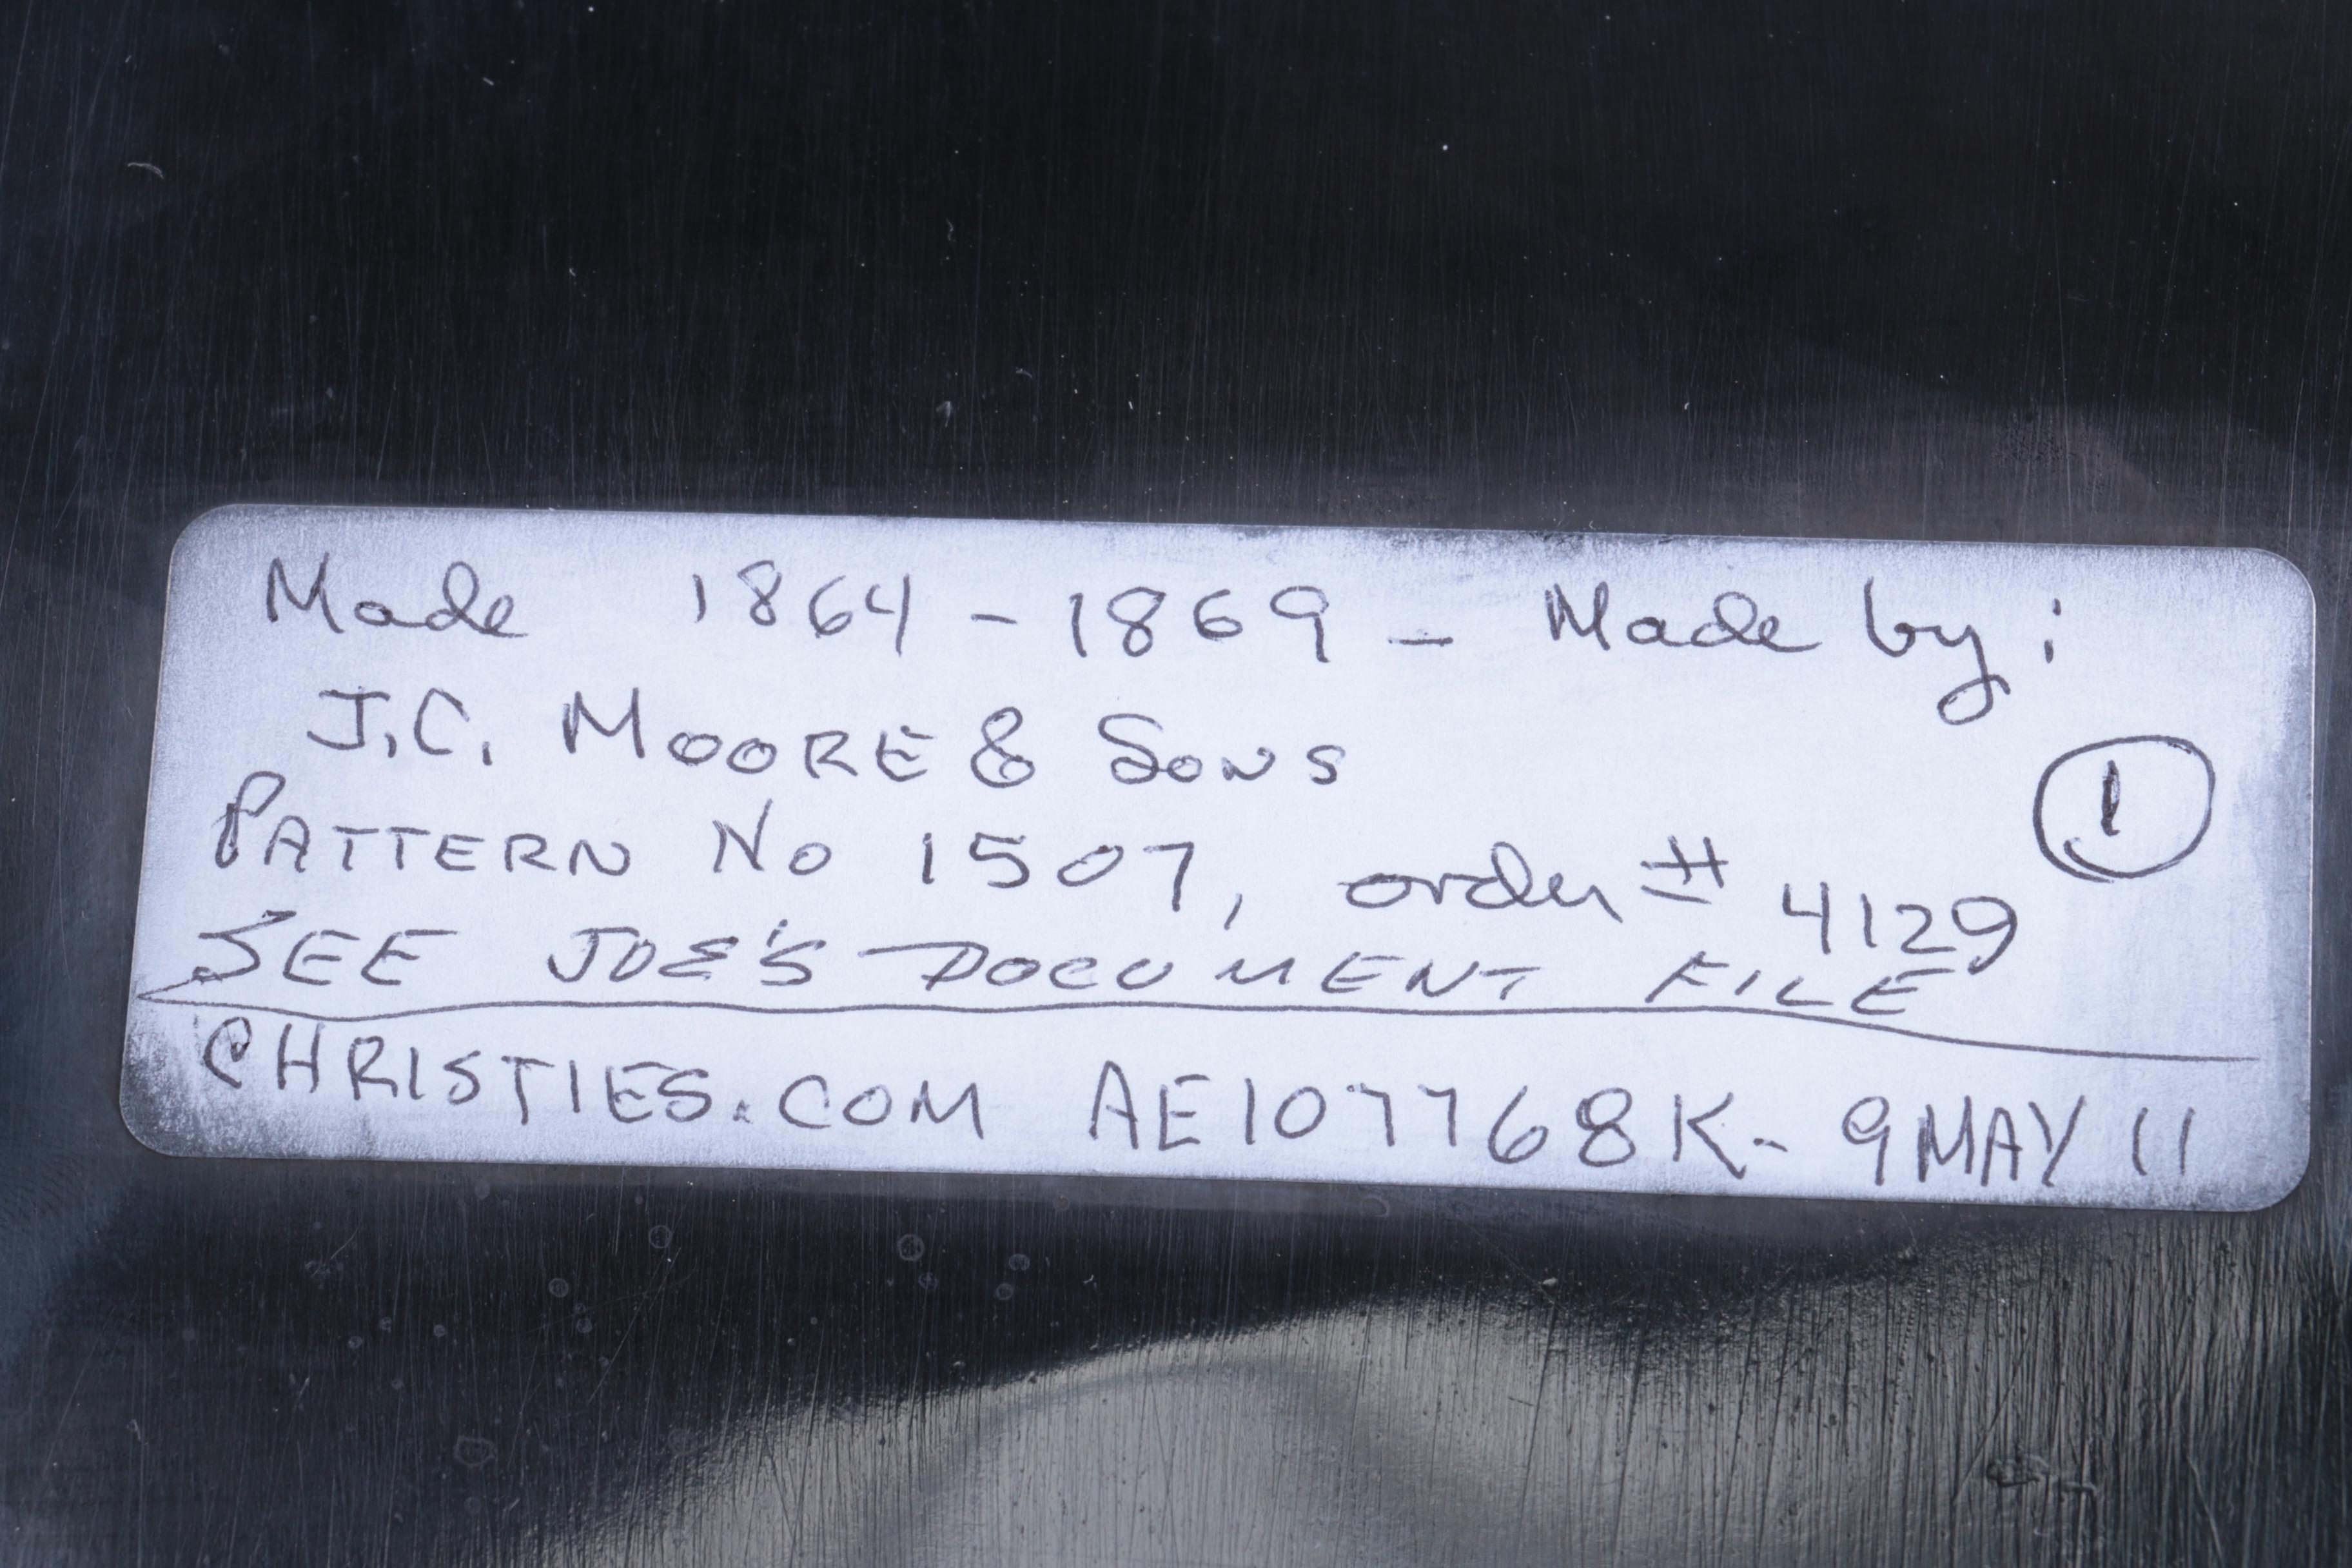 Made 1864 - 1869 - Made by:
J.C. MOORE & SONS
①
PATTERN No 1507, order # 4129
SEE JOE'S DOCUMENT FILE
CHRISTIES.COM AE107768K- 9MAY 11